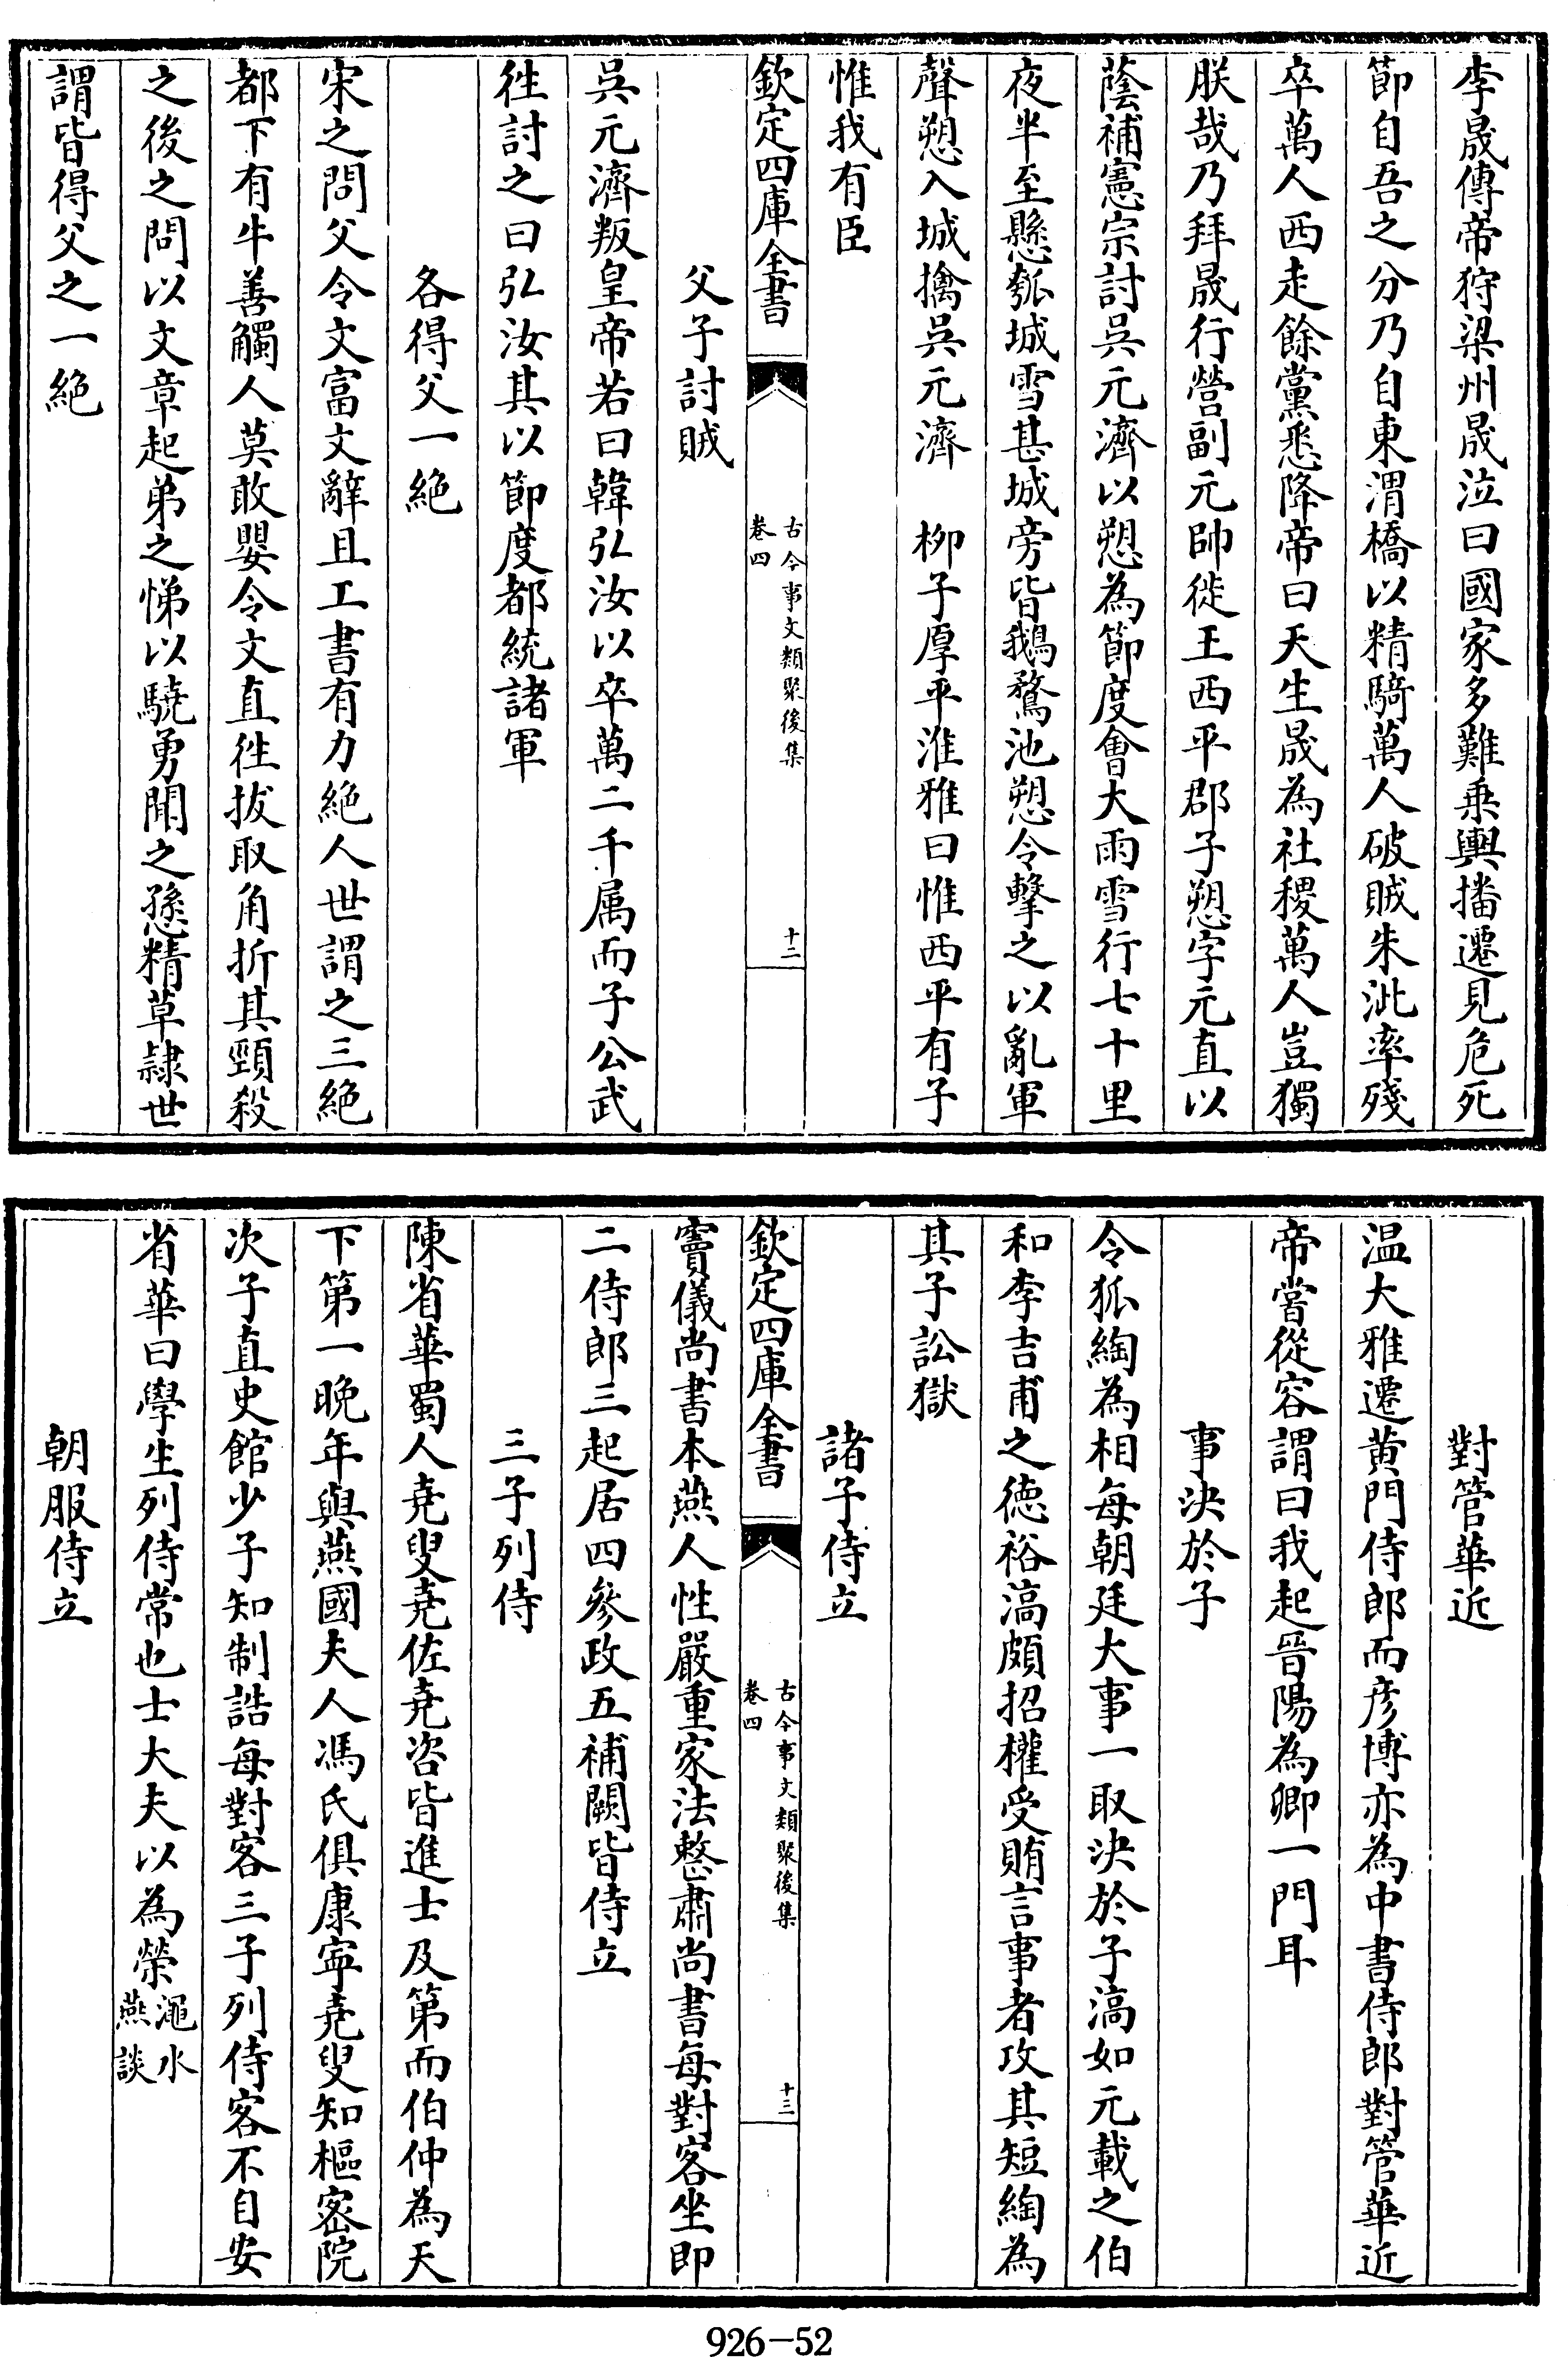 李晟傳帝狩梁州晟泣曰國家多難乗輿播遷見危死
節自吾之分乃自東渭橋以精騎萬人破賊朱泚率殘
卒萬人西走餘黨悉降帝曰天生晟為社稷萬人豈獨
朕哉乃拜晟行營副元帥徙王西平郡子愬字元直以
蔭補憲宗討呉元濟以愬為節度會大雨雪行七十里
夜半至懸瓠城雪甚城旁皆鵝鶩池愬令擊之以亂軍
聲愬入城擒呉元濟　柳子厚平淮雅曰惟西平有子
惟我有臣
欽定四庫全書
古今事文類聚後集
卷四
十二
父子討賊
呉元濟叛皇帝若曰韓弘汝以卒萬二千属而子公武
徃討之曰弘汝其以節度都統諸軍
各得父一絶
宋之問父令文富文辭且工書有力絶人世謂之三絶
都下有牛善觸人莫敢嬰令文直徃拔取角折其頸殺
之後之問以文章起弟之悌以驍勇聞之愻精草隷世
謂皆得父之一絶
對管華近
温大雅遷黄門侍郎而彦博亦為中書侍郎對管華近
帝嘗從容謂曰我起晉陽為卿一門耳
事決於子
令狐綯為相每朝廷大事一取決於子滈如元載之伯
和李吉甫之德裕滈頗招權受賄言事者攻其短綯為
其子訟獄
諸子侍立
欽定四庫全書
古今事文類聚後集
卷四
十三
竇儀尚書本燕人性嚴重家法整肅尚書每對客坐即
二侍郎三起居四參政五補闕皆侍立
三子列侍
陳省華蜀人堯叟堯佐堯咨皆進士及第而伯仲為天
下第一晚年與燕國夫人馮氏俱康寧堯叟知樞密院
次子直史館少子知制誥每對客三子列侍客不自安
省華曰學生列侍常也士大夫以為榮澠水燕談
朝服侍立
926-52